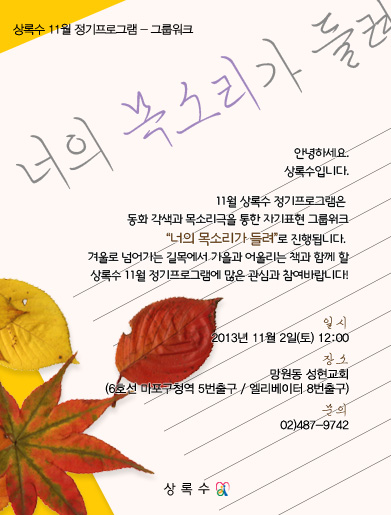 상록수 11월 정기프로그램 - 그룹워크
너의 목소리가 들려
안녕하세요.
상록수입니다.
11월 상록수 정기프로그램은
동화 각색과 목소리극을 통한 자기표현 그룹워크
"너의 목소리가 들려"로 진행됩니다.
겨울로 넘어가는 길목에서 가을과 어울리는 책과 함께 할
상록수 11월 정기프로그램에 많은 관심과 참여바랍니다!
일시
2013년 11월 2일(토) 12:00
장소
망원동 성현교회
(6호선 마포구청역 5번출구 / 엘리베이터 8번출구)
문의
02)487-9742
상록수